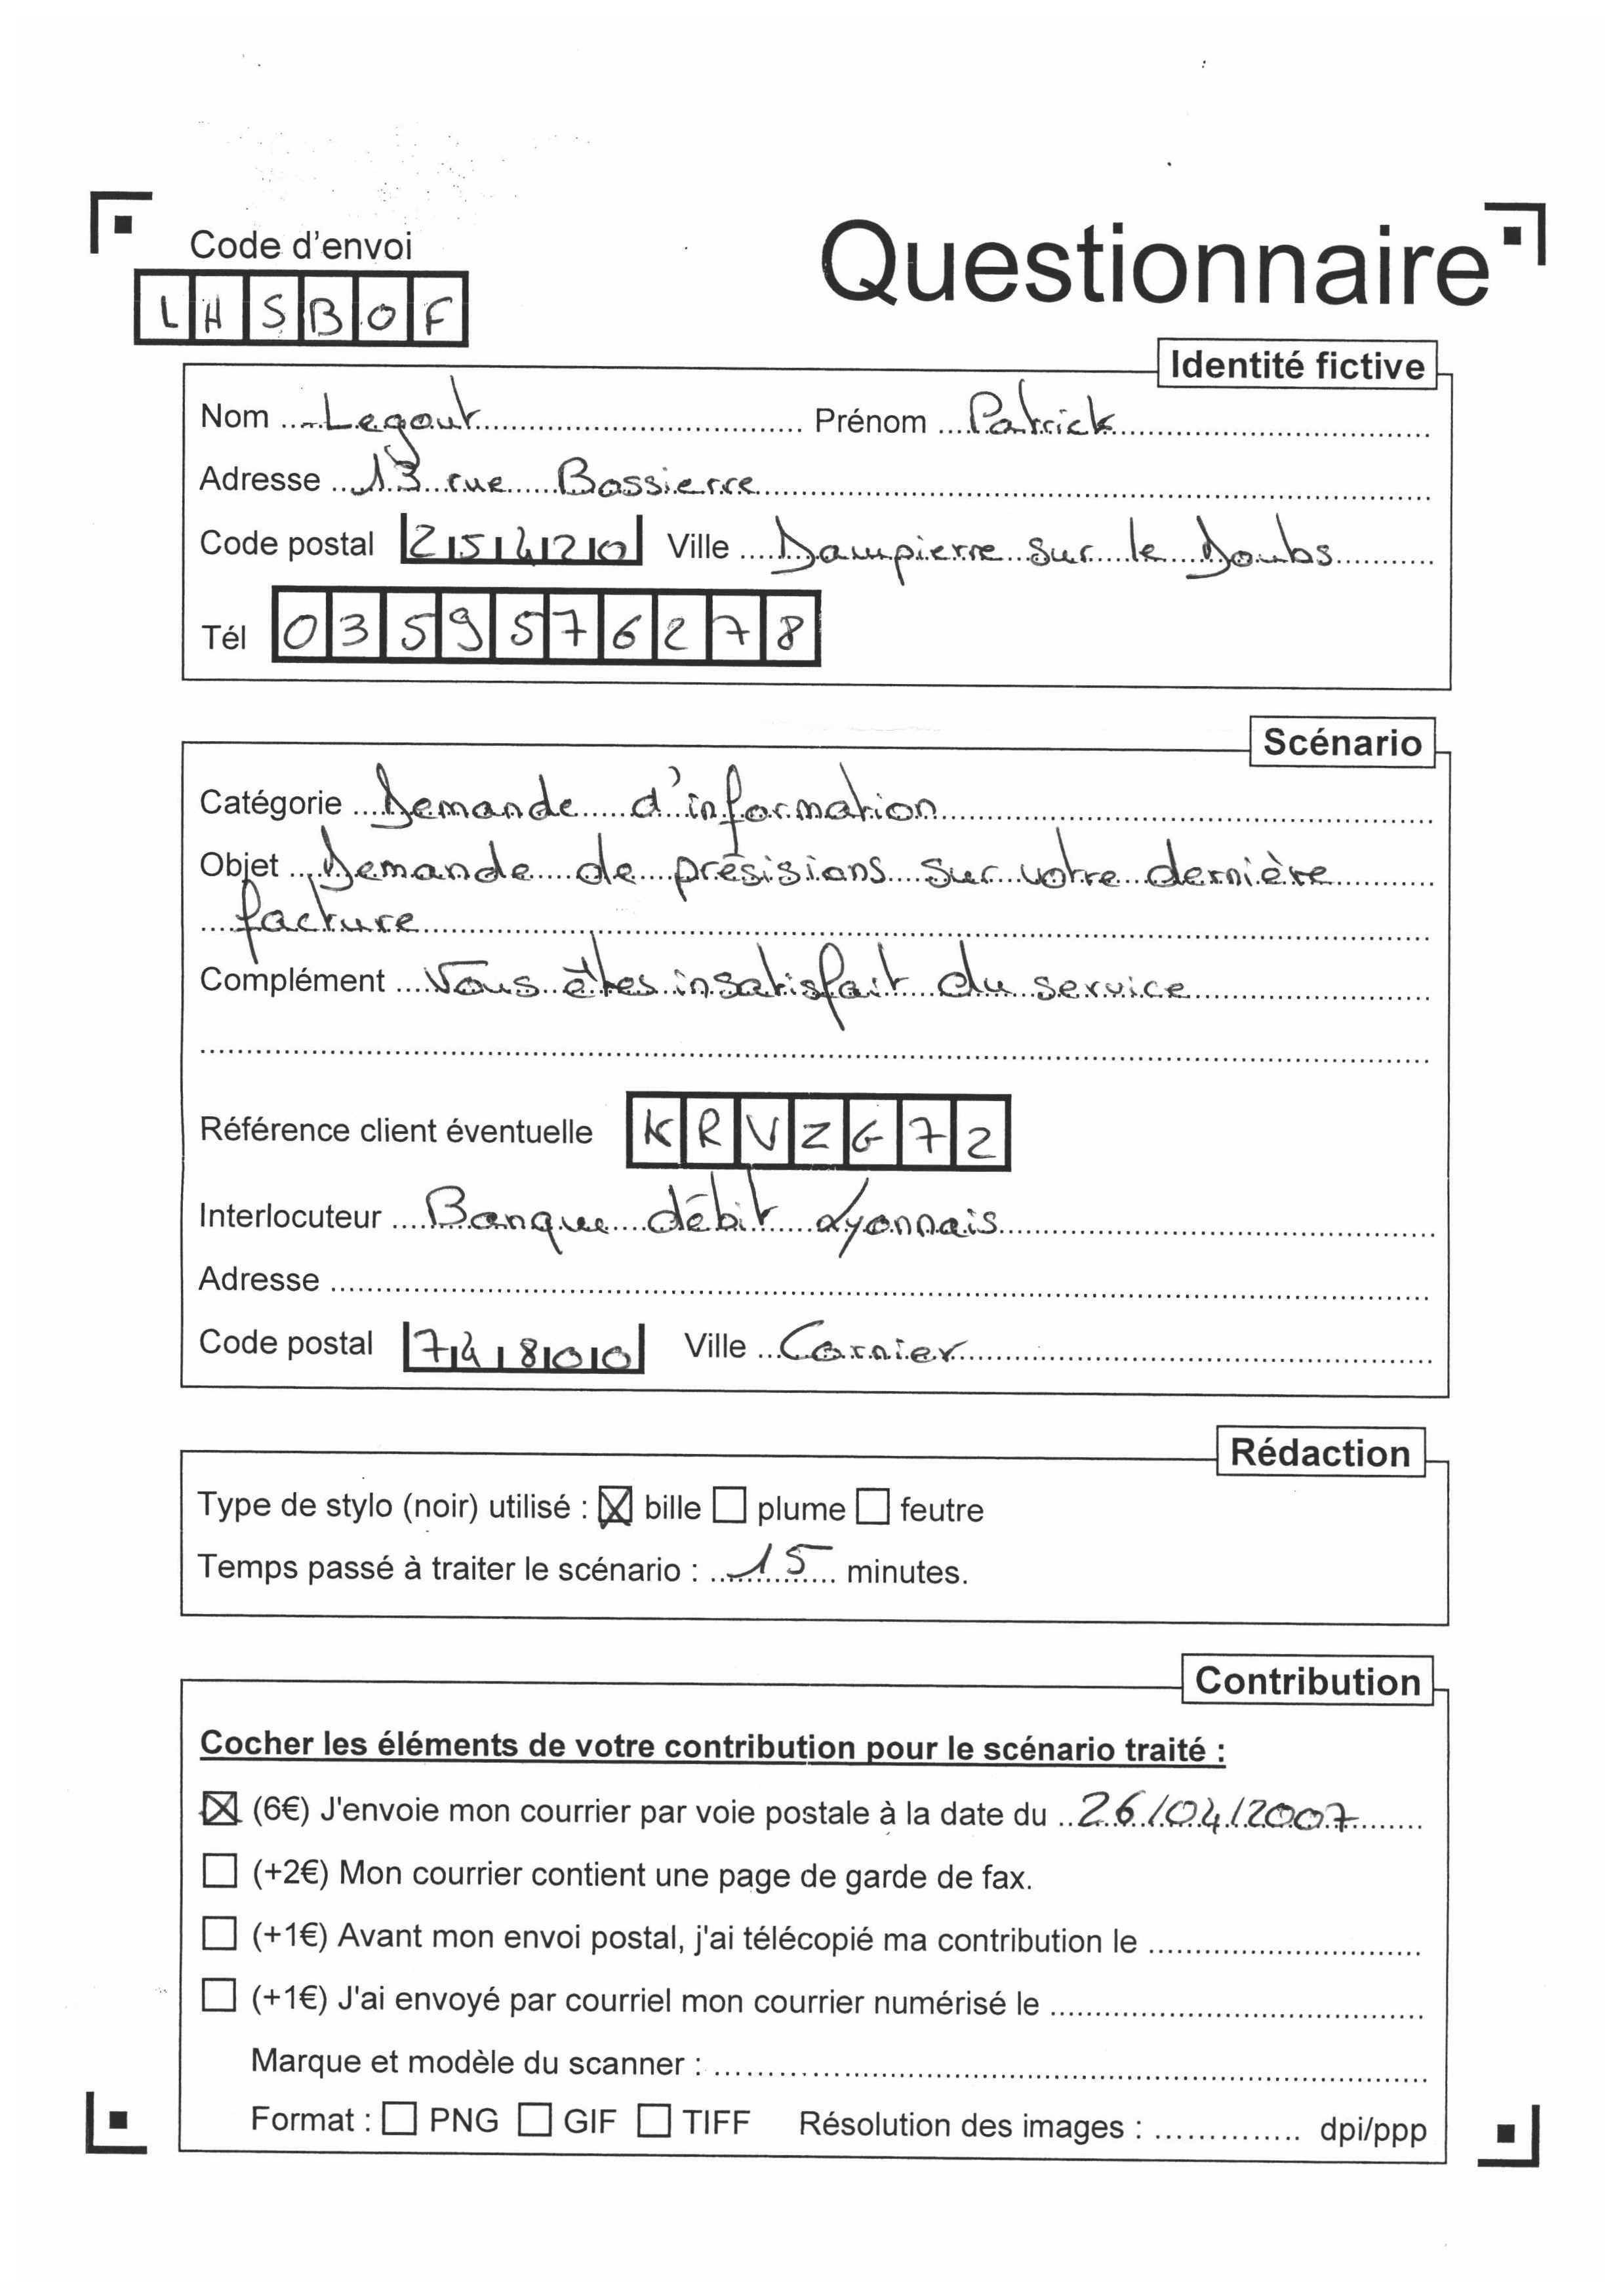 Code d'envoi
Questionnaire
LHSBOF
Identité fictive
Nom Legout Prénom Patrick
Adresse 13 rue Bossierre
Code postal 25420 Ville Dampierre sur le Doubs
Tél 0359576278
Scénario
Catégorie Demande d'information
Objet Demande de présisions sur votre dernière
facture
Complément Vous êtes insatisfait du service
Référence client éventuelle KRVZG72
Interlocuteur Banque débit Lyonnais
Adresse
Code postal 74800 Ville Cornier
Rédaction
Type de stylo (noir) utilisé : ☒ bille ☐ plume ☐ feutre
Temps passé à traiter le scénario : 15 minutes.
Contribution
Cocher les éléments de votre contribution pour le scénario traité :
☒ (6€) J'envoie mon courrier par voie postale à la date du 26/04/2007
☐ (+2€) Mon courrier contient une page de garde de fax.
☐ (+1€) Avant mon envoi postal, j'ai télécopié ma contribution le
☐ (+1€) J'ai envoyé par courriel mon courrier numérisé le
Marque et modèle du scanner :
Format : ☐ PNG ☐ GIF ☐ TIFF Résolution des images : dpi/ppp